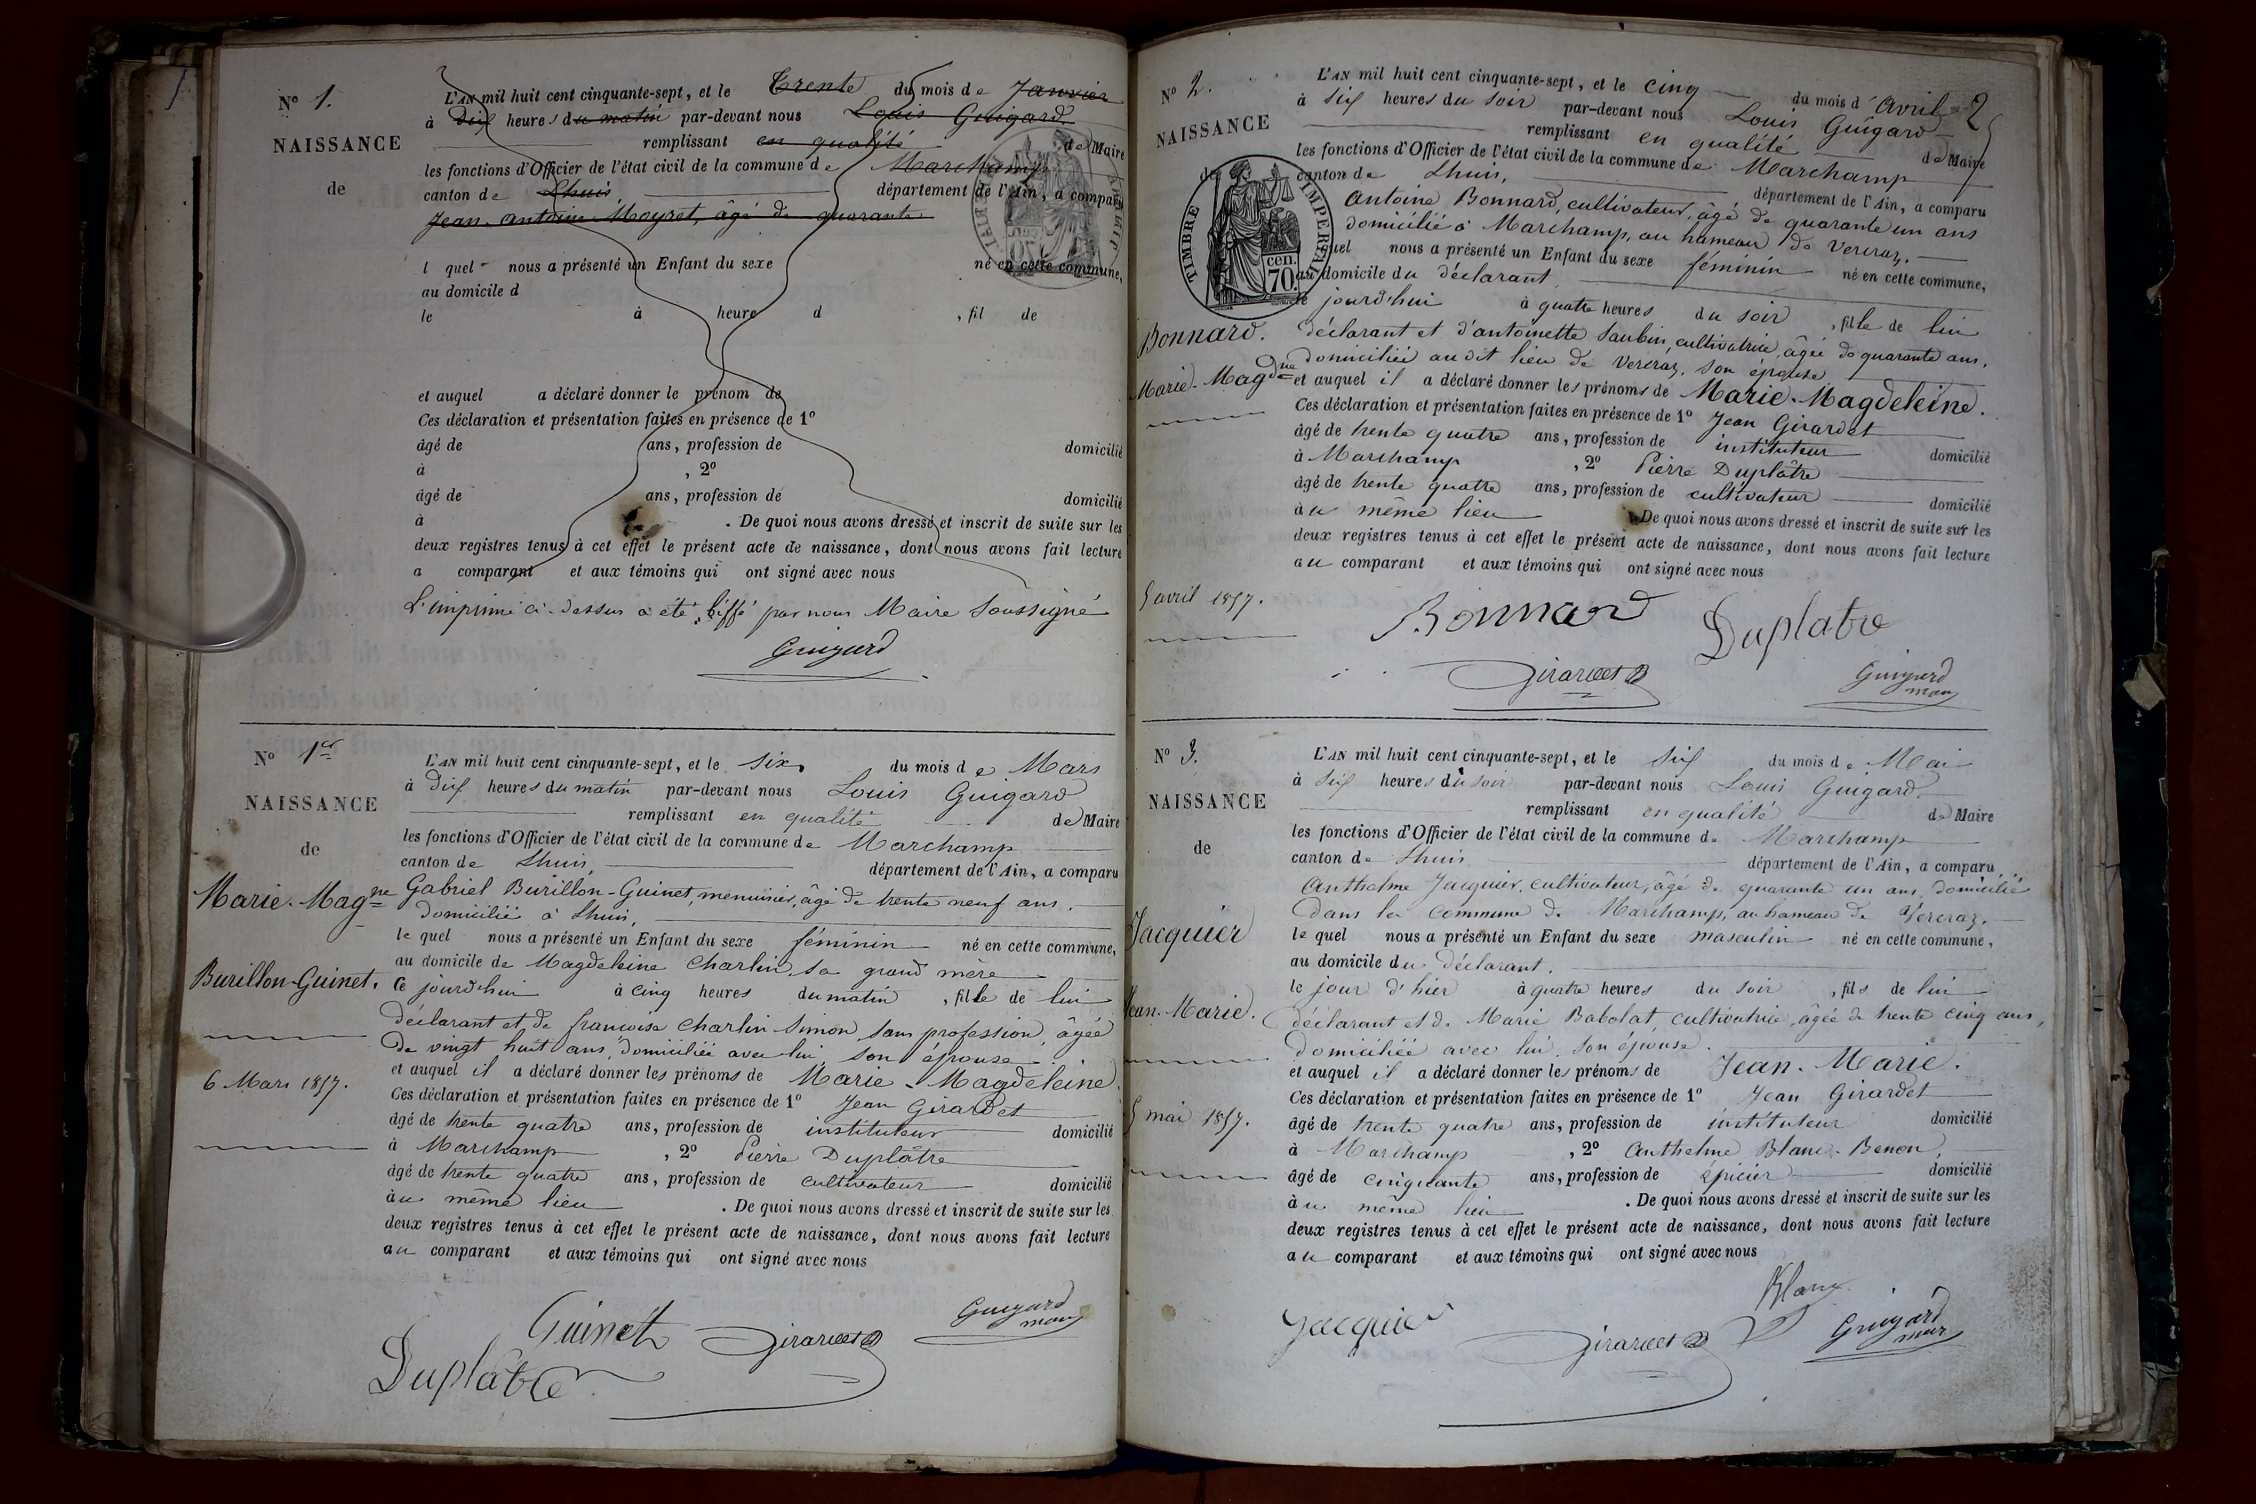 1
N° 1.
NAISSANCE
de
L'AN mil huit cent cinquante-sept, et le Trente du mois de Janvier
à dix heures du matin par-devant nous Louis Guigard
remplissant en qualité de Maire
les fonctions d'Officier de l'état civil de la commune de Marchamp
canton de Lhuis département de l'Ain, a comparu
Jean-antoine Moyret, âgé de quarante
l quel nous a présenté un Enfant du sexe né en cette commune,
au domicile d
le à heure d , fil de
et auquel a déclaré donner le prénom de
Ces déclaration et présentation faites en présence de 1°
âgé de ans, profession de domicilié
à , 2°
âgé de ans, profession de domicilié
à . De quoi nous avons dressé et inscrit de suite sur les
deux registres tenus à cet effet le présent acte de naissance, dont nous avons fait lecture
a comparant et aux témoins qui ont signé avec nous
L'imprimé ci-dessus a été biffé par nous Maire Soussigné
Guigard
N° 1er
NAISSANCE
de
Marie-Magne
Burillon-Guinet.
6 Mars 1857.
L'AN mil huit cent cinquante-sept, et le six du mois de Mars
à dix heures du matin par-devant nous Louis Guigard
remplissant en qualité de Maire
les fonctions d'Officier de l'état civil de la commune de Marchamp
canton de Lhuis, département de l'Ain, a comparu
Gabriel Burillon-Guinet, menuisier, âgé de trente neuf ans.
domicilié à Lhuis,
le quel nous a présenté un Enfant du sexe féminin né en cette commune,
au domicile de Magdeleine Charlin, sa grand mère
ce jourd'hui à cinq heures du matin , fille de lui
déclarant et de francoise Charlin Simon sans profession, âgée
de vingt huit ans, domiciliée avec lui, son épouse
et auquel il a déclaré donner les prénoms de Marie-Magdeleine.
Ces déclaration et présentation faites en présence de 1° Jean Girardet
âgé de trente quatre ans, profession de instituteur domicilié
à Marchamp , 2° Pierre Duplâtre
âgé de trente quatre ans, profession de cultivateur domicilié
au même lieu . De quoi nous avons dressé et inscrit de suite sur les
deux registres tenus à cet effet le présent acte de naissance, dont nous avons fait lecture
au comparant et aux témoins qui ont signé avec nous
Guinet Girardet Guigard maire
Duplâtre
2
N° 2.
NAISSANCE
de
TIMBRE IMPERIAL
70 cen.
Bonnard.
Marie-Magdne
5 avril 1857.
L'AN mil huit cent cinquante-sept, et le cinq du mois d'avril
à six heures du soir par-devant nous Louis Guigard
remplissant en qualité de Maire
les fonctions d'Officier de l'état civil de la commune de Marchamp
canton de Lhuis, département de l'Ain, a comparu
Antoine Bonnard, cultivateur, âgé de quarante un ans
domicilié à Marchamp, au hameau de Vercraz.
quel nous a présenté un Enfant du sexe féminin né en cette commune,
au domicile du déclarant
ce jourd'hui à quatre heures du soir , fille de lui
déclarant et d'antoinette Saubin, cultivatrice, âgée de quarante ans,
domiciliée au dit lieu de Vercraz, son épouse
et auquel il a déclaré donner les prénoms de Marie-Magdeleine.
Ces déclaration et présentation faites en présence de 1° Jean Girardet
âgé de trente quatre ans, profession de instituteur domicilié
à Marchamp , 2° Pierre Duplâtre
âgé de trente quatre ans, profession de cultivateur domicilié
au même lieu . De quoi nous avons dressé et inscrit de suite sur les
deux registres tenus à cet effet le présent acte de naissance, dont nous avons fait lecture
au comparant et aux témoins qui ont signé avec nous
Bonnard Duplatre
Girardet Guigard maire
N° 3.
NAISSANCE
de
Jacquier
Jean-Marie.
5 mai 1857.
L'AN mil huit cent cinquante-sept, et le six du mois de Mai
à six heures du soir par-devant nous Louis Guigard.
remplissant en qualité de Maire
les fonctions d'Officier de l'état civil de la commune de Marchamp
canton de Lhuis département de l'Ain, a comparu
Anthelme Jacquier, cultivateur, âgé de quarante un ans, domicilié
dans la commune de Marchamp, au hameau de Vercraz.
le quel nous a présenté un Enfant du sexe masculin né en cette commune,
au domicile du déclarant.
le jour d'hier à quatre heures du soir , fils de lui
déclarant et de Marie Babolat, cultivatrice, âgée de trente cinq ans,
domiciliée avec lui, son épouse.
et auquel il a déclaré donner les prénoms de Jean-Marie.
Ces déclaration et présentation faites en présence de 1° Jean Girardet
âgé de trente quatre ans, profession de instituteur domicilié
à Marchamp , 2° Anthelme Blanc-Benon,
âgé de cinquante ans, profession de épicier domicilié
au même lieu . De quoi nous avons dressé et inscrit de suite sur les
deux registres tenus à cet effet le présent acte de naissance, dont nous avons fait lecture
au comparant et aux témoins qui ont signé avec nous
Blanc
Jacquier Girardet Guigard maire